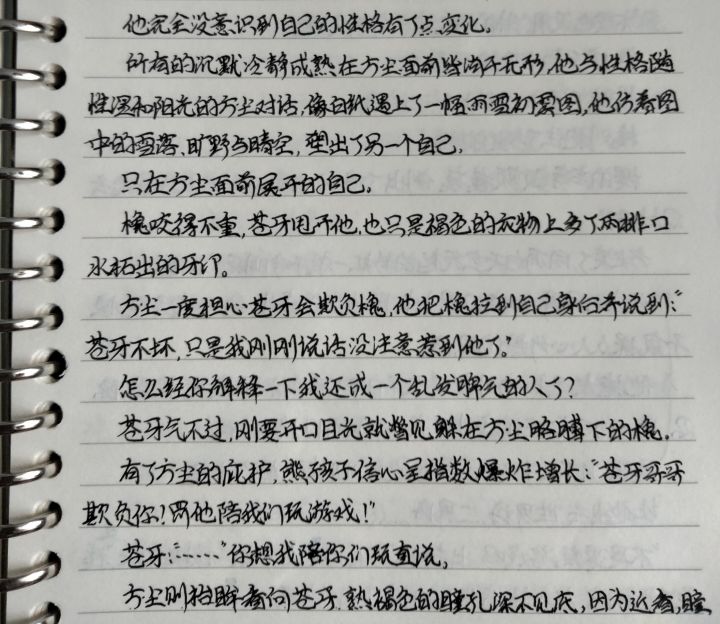 他完全没意识到自己的性格有了点变化。
所有的沉默冷静成熟在方尘面前皆消于无形，他与性格随
性温和阳光的方尘对话，像白纸遇上了一幅雨雪初霁图，他仿着图
中的雪落、旷野与晴空，塑出了另一个自己。
只在方尘面前展开的自己。
槐咬得不重，苍牙甩开他，也只是褐色的衣物上多了两排口
水拓出的牙印。
方尘一度担心苍牙会欺负槐，他把槐拉到自己身向并说到：“
苍牙不坏，只是我刚刚说话没注意惹到他了。”
怎么经你解释一下我还成一个乱发脾气的人了？
苍牙气不过，刚要开口目光就瞥见躲在方尘胳膊下的槐。
有了方尘的庇护，熊孩子信心呈指数爆炸增长：“苍牙哥哥
欺负你！罚他陪我们玩游戏！”
苍牙：“……”你想我陪你们玩直说。
方尘则抬眸看向苍牙，熟褐色的瞳孔深不见底，因为近看，瞳